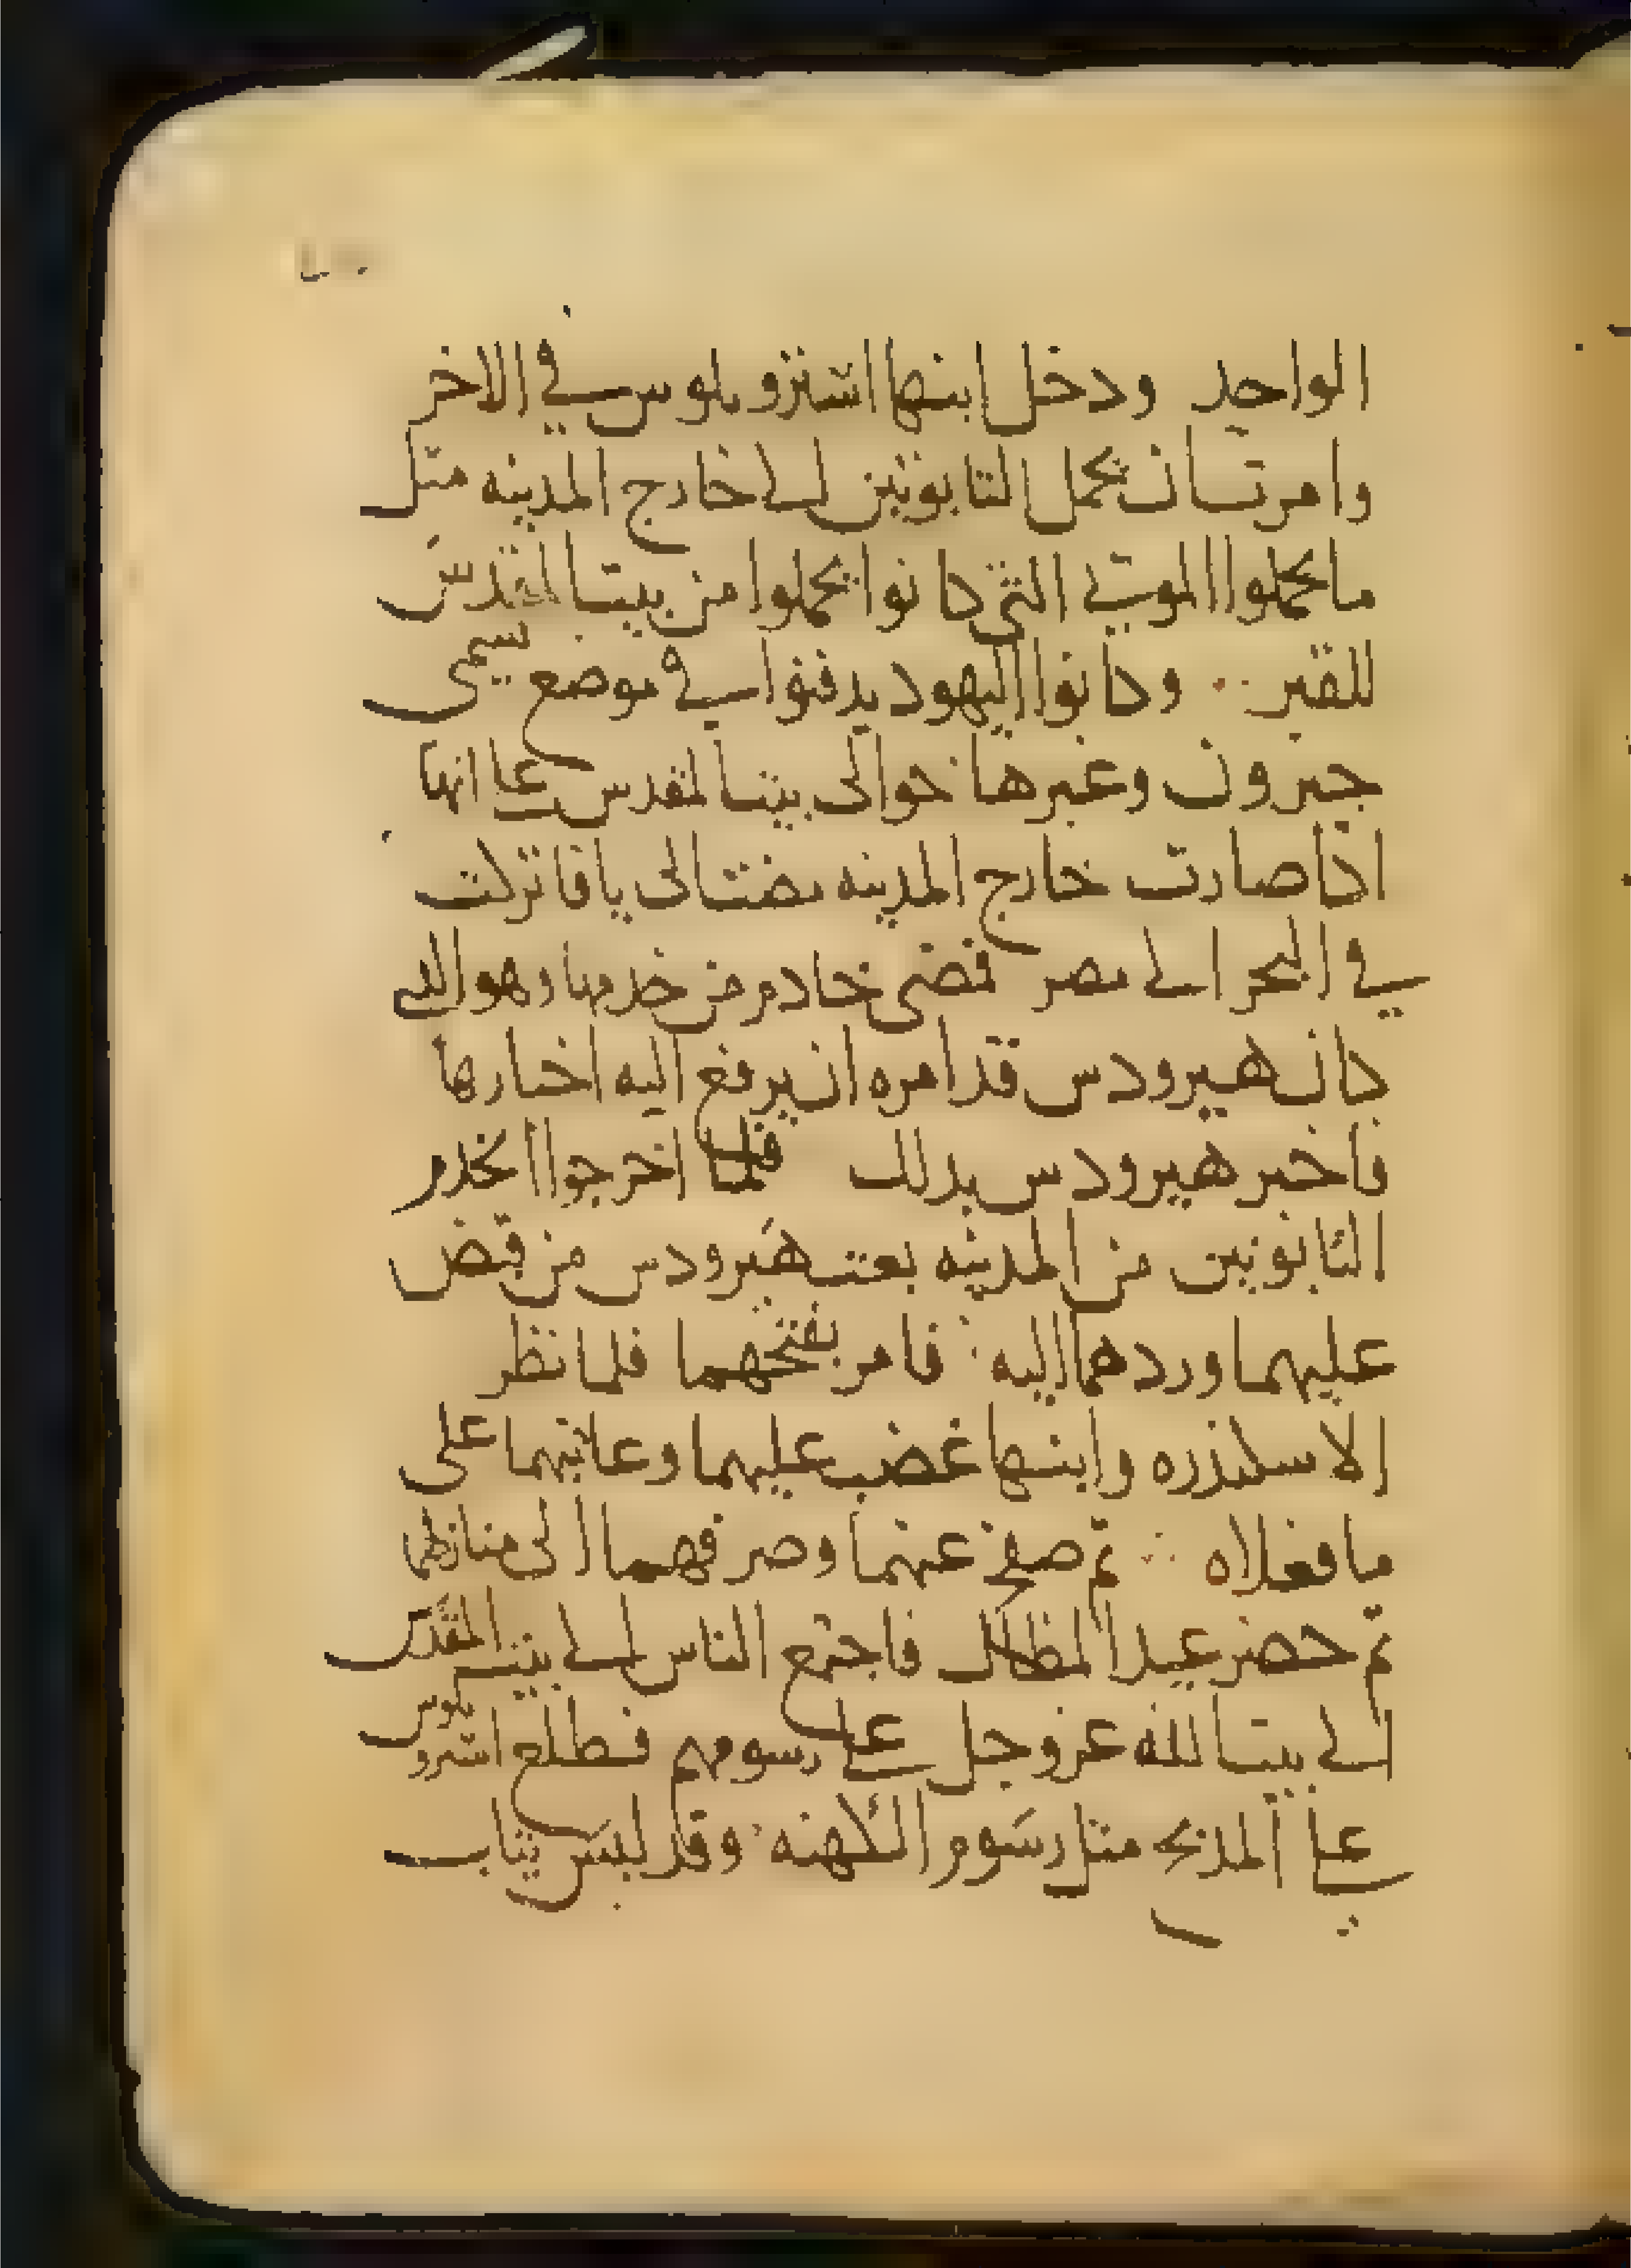 الواحد ودخل ابنها اشترو بلوس في الاخر
وامرت ان تحمل التابوتين الى خارج المدينه متل
ما يحملوا الموتى التي كانوا يحملوا من بيت المقدس
للقبر ودانوا اليهود يدفنوا في موضع يسمى
جبرون وغيرها حوالى بيت المقدس على انها
اذا صارت خارج المدينه مضت الى يافا تركت
في البحر الى مصر فمضى خادم من خدمها وهو الذي
كان هيرودس قد امره ان يرفع اليه اخبارها
فاخبر هيرودس بدلك فلما اخرجوا
التابوتين من المدينه بعت هيرودس من قبض
عليهما وردهما اليه فامر بفتحهما فلما نظر
الاسكندره وابنها غضب عليهما وعاتبهما على
ما فعلاه تم صفح عنهما وصرفهما الى منازلهما
تم حضر عيد المظال فاجتمع الناس الى بيت المقدس
الى بيت الله عز وجل على رسومهم فطلع اشترو بلوس
على المذبح متل رسوم الكهنه وقد لبس تياب